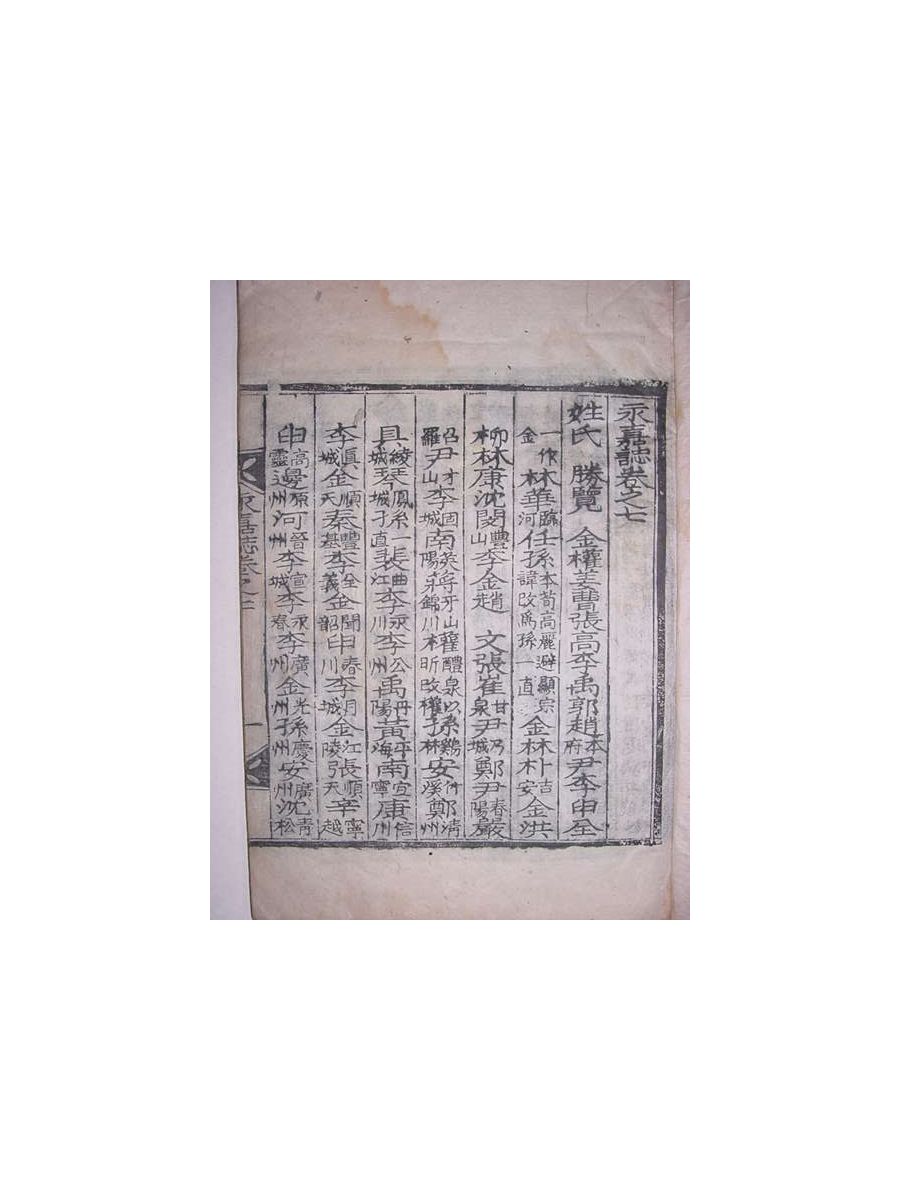 永嘉誌卷之七
姓氏 勝覽 金權姜曹張高李禹郭趙本府尹李申全
一作金林華臨河任孫本荀高麗避顯宗諱改爲孫一直金林朴吉安金洪
柳林康沈閔豊山李金趙 文張崔甘泉尹乃城鄭尹春陽嚴
召羅尹才山李固城南英陽牙山權醴泉以本昕改權孫鷄林安竹溪鄭淸州
具綾城琴鳳城孫一直裴曲江李永川李公州禹丹陽黃平海南宜寧康信川
李眞城金順天秦豊基李全義金聞韶申春川李月城金江陵張順天辛寧越
申高靈邊原州河晉州李宣城李永春李廣州金光州孫慶州安廣州沈靑松
永嘉誌卷之七 一